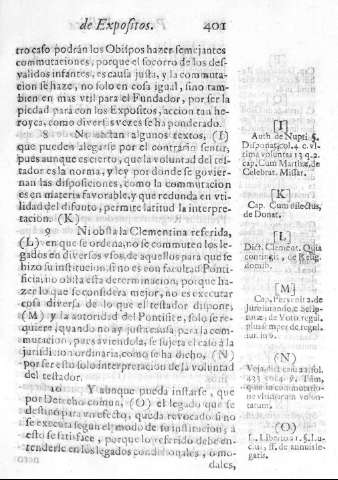 de Expositos. 401
tro caso podrán los Obispos hazer semejantes
commutaciones, porque el socorro de los des-
validos infantes, es causa justa, y la commuta-
cion se haze, no solo en cosa igual, sino tam-
bien en mas vtil para el Fundador, por ser la
piedad para con los Expositos, accion tan he-
royca, como diversas vezes se ha ponderado.
8 No obstan algunos textos, (I)
que pueden alegarse por el contrario sentir,
pues aunque es cierto, que la voluntad del tes-
tador es la norma, y ley por donde se govier-
nan las disposiciones, como la commutacion
es en materia favorable, y que redunda en vti-
lidad del difunto, permite latitud la interpre-
tacion. (K)
9 Ni obsta la Clementina referida,
(L) en que se ordena, no se commuten los le-
gados en diversos vsos, de aquellos para que se
hizo su institucion, si no es con facultad Ponti-
ficia, no obsta esta determinacion, porque ha-
zer lo que se considera mejor, no es executar
cosa diversa de lo que el testador dispone,
(M) y la autoridad del Pontifice, solo se re-
quiere, quando no ay justa causa para la com-
mutacion, pues aviendola, se sujeta el caso à la
jurisdicion ordinaria, como se ha dicho, (N)
por ser esto solo interpretacion de la voluntad
del testador.
10 Y aunque pueda instarse, que
por Derecho comun, (O) el legado que se
destinò para vn efecto, queda revocado si no
se executa segun el modo de su institucion; à
esto se satisface, porque lo referido debe en-
tenderse en los legados condicionales, o mo-
dales,
[I]
Auth. de Nupti. §.
Disponat, col. 4. c. vl-
tima voluntas 13. q. 2.
cap. Cum Marthæ, de
Celebrat. Missar.
[K]
Cap. Cum dilectus,
de Donat.
[L]
Dict. Clement. Quia
contingit, de Relig.
domib.
[M]
Cap. Pervenit 2. de
Jurejurando,
de Voto
regul.
(N)
(O)
L. Libertis 21. §. Lu-
cius, ff. de annuis le-
gatis.